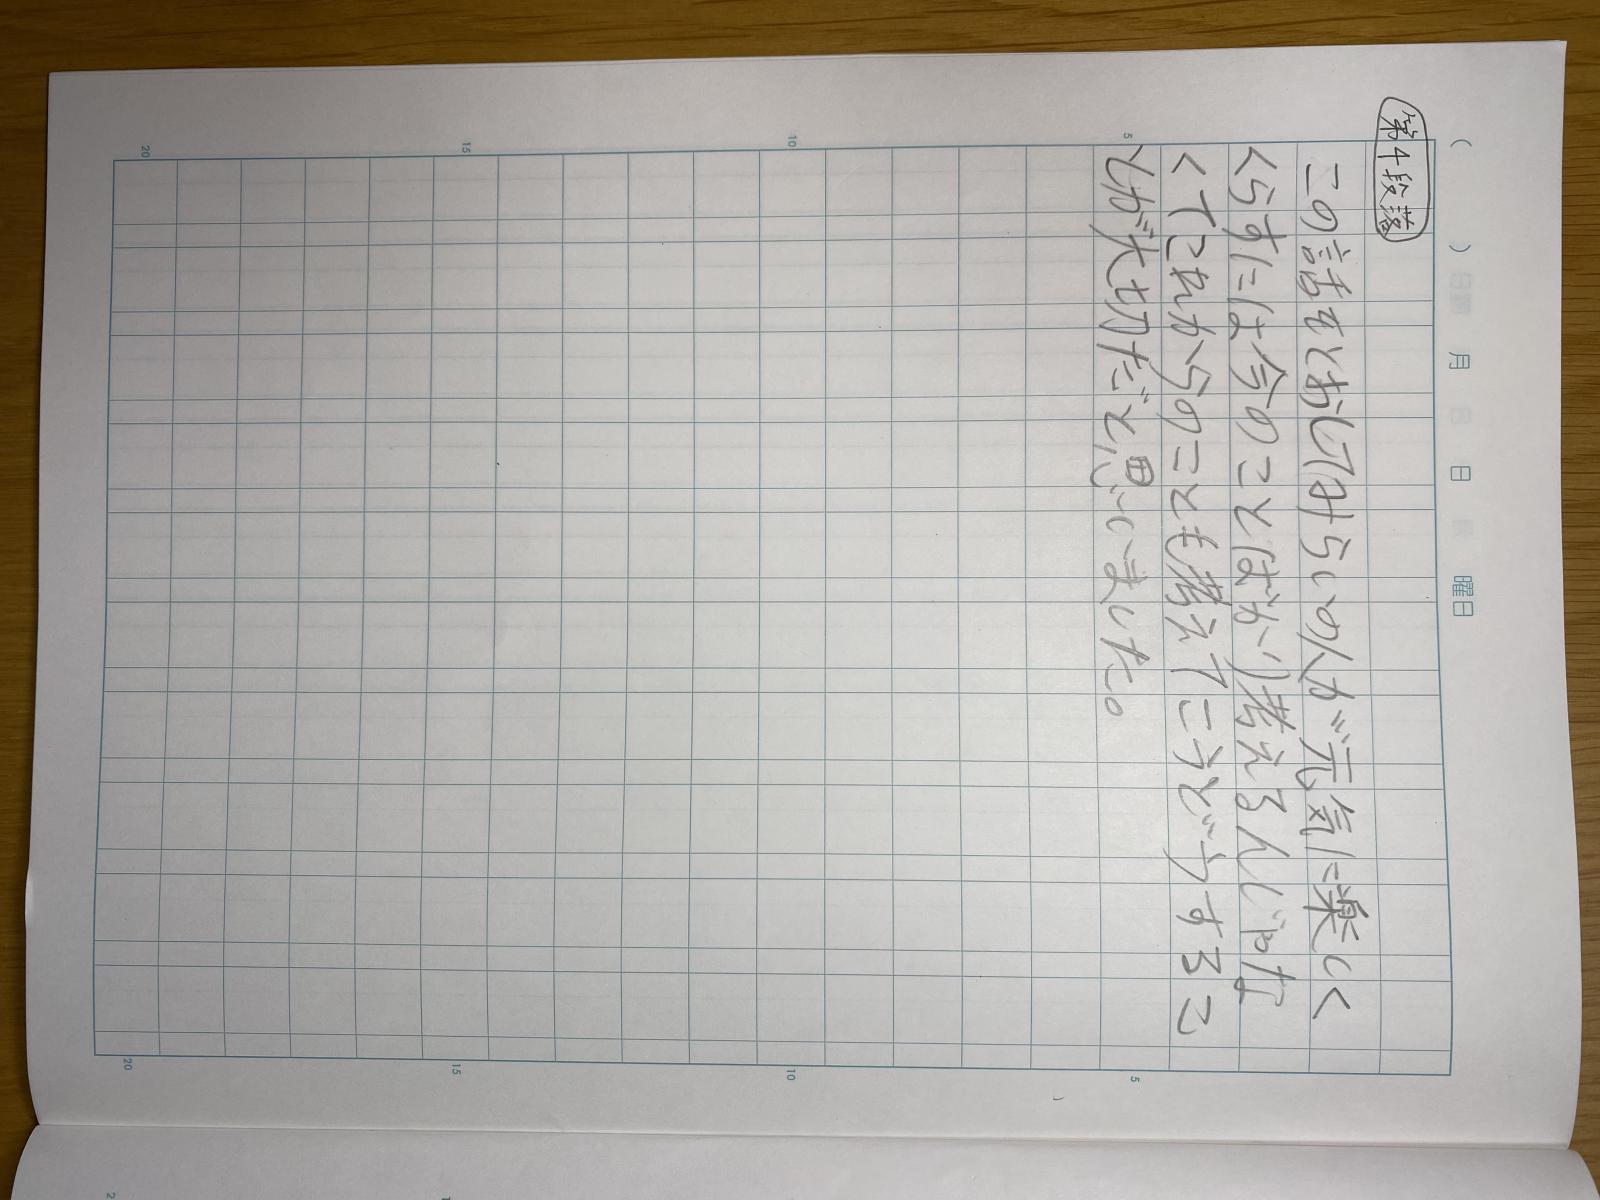 ( ) 月 日 曜日
第4段落
この話をとおしてみらいの人が元気に楽しく
くらすには今のことばかり考えるんじゃな
くてこれからのことも考えてこうどうするこ
とが大切だと思いました。
5
10
15
20
5
10
15
20